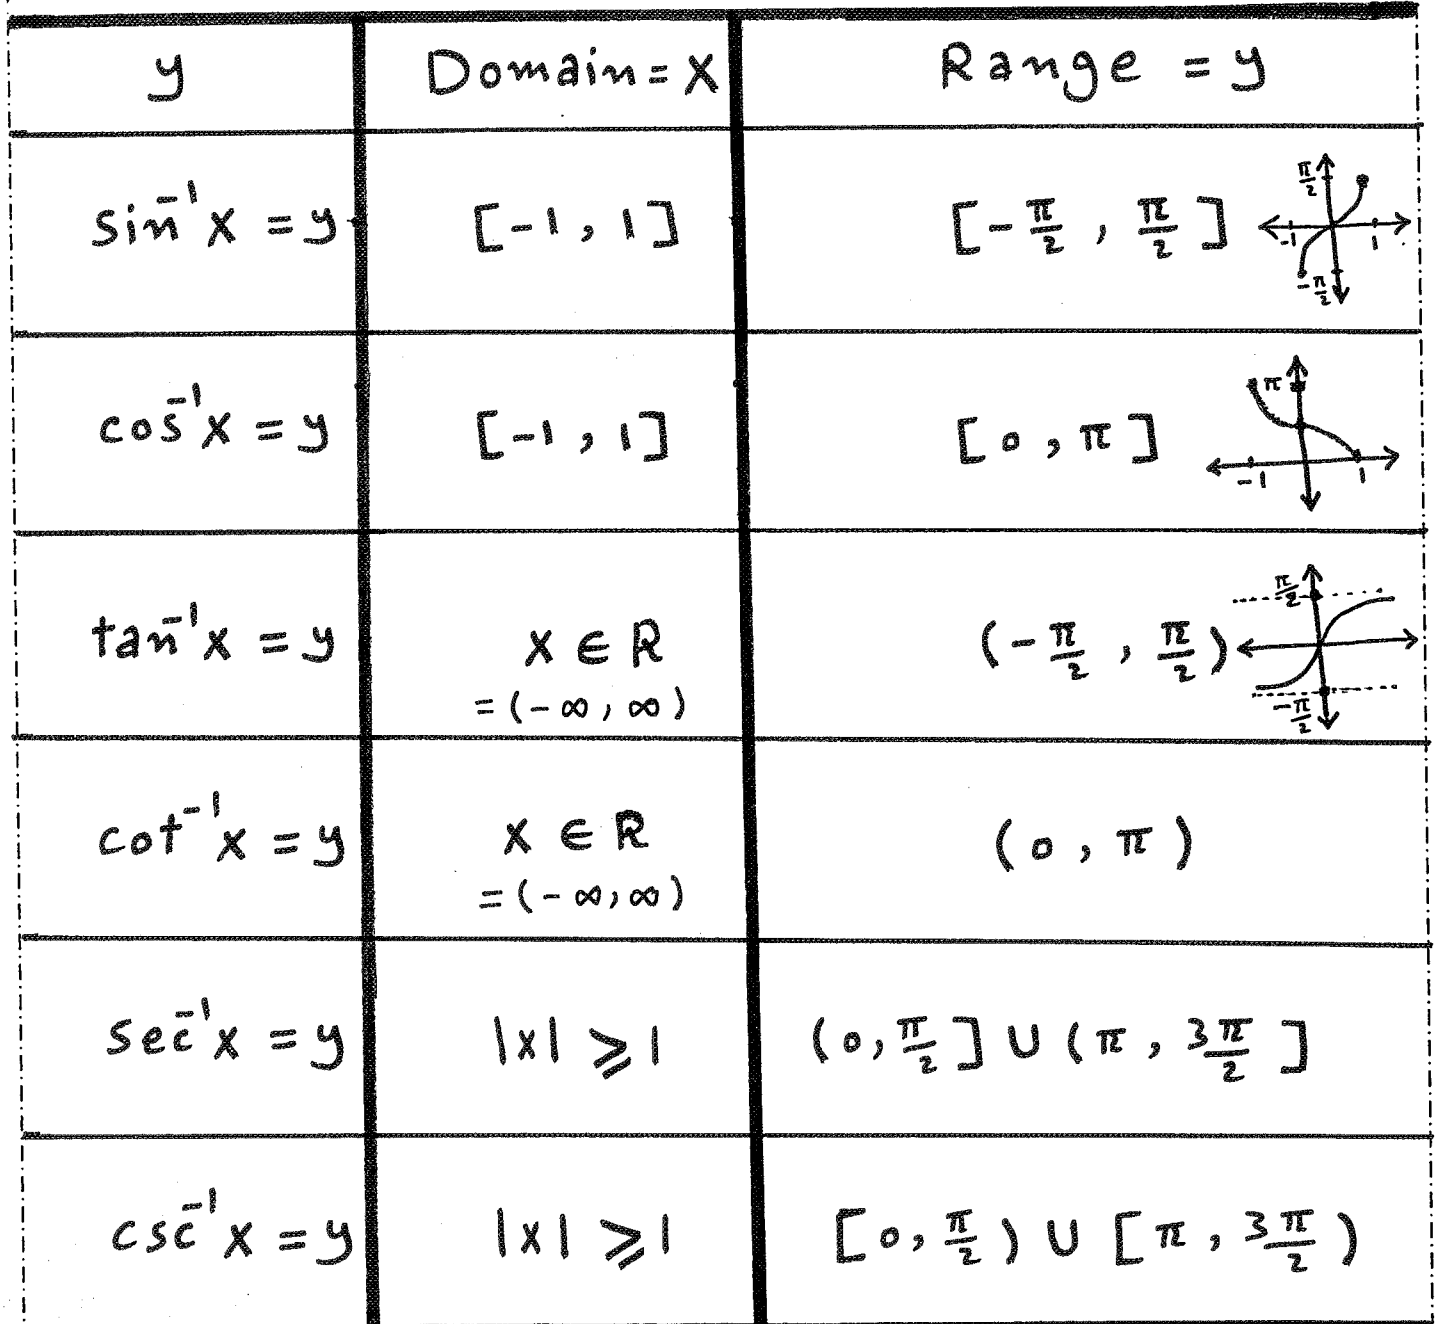 y Domain = x Range = y
sin⁻¹x = y [-1, 1] [-π/2, π/2] π/2 -1 1 -π/2
cos⁻¹x = y [-1, 1] [0, π] π -1 1
tan⁻¹x = y x ∈ R (-π/2, π/2) π/2 -π/2
= (-∞, ∞)
cot⁻¹x = y x ∈ R (0, π)
= (-∞, ∞)
sec⁻¹x = y |x| ⩾ 1 (0, π/2] ∪ (π, 3π/2]
csc⁻¹x = y |x| ⩾ 1 [0, π/2) ∪ [π, 3π/2)